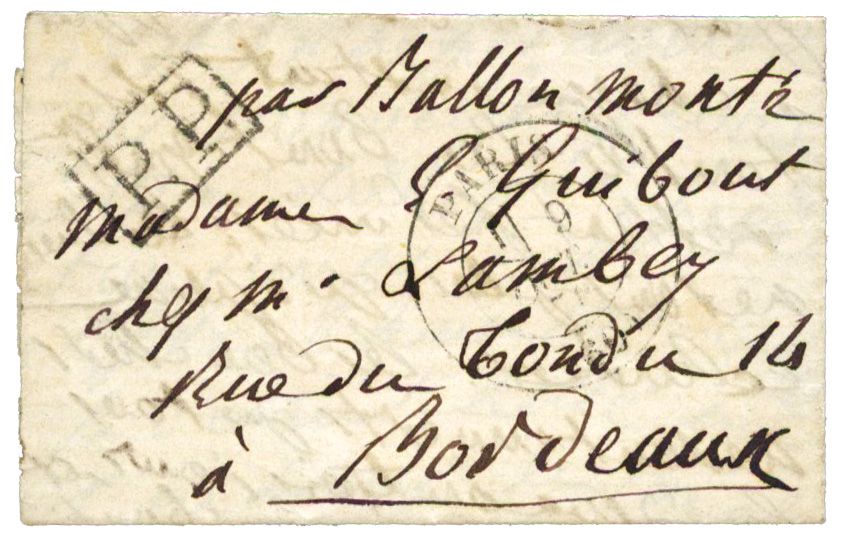 par Ballon monté
P.P.
PARIS
9
madame E Guibout
chez Mr Lambey
Rue du Tondu 14
à Bordeaux